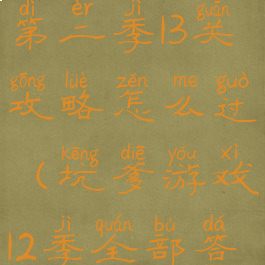 dì èr jì guān
第二季13关
gōng lüè zěn me guò
攻略怎么过
kēng diē yóu xì
(坑爹游戏
jì quán bù dá
12季全部答